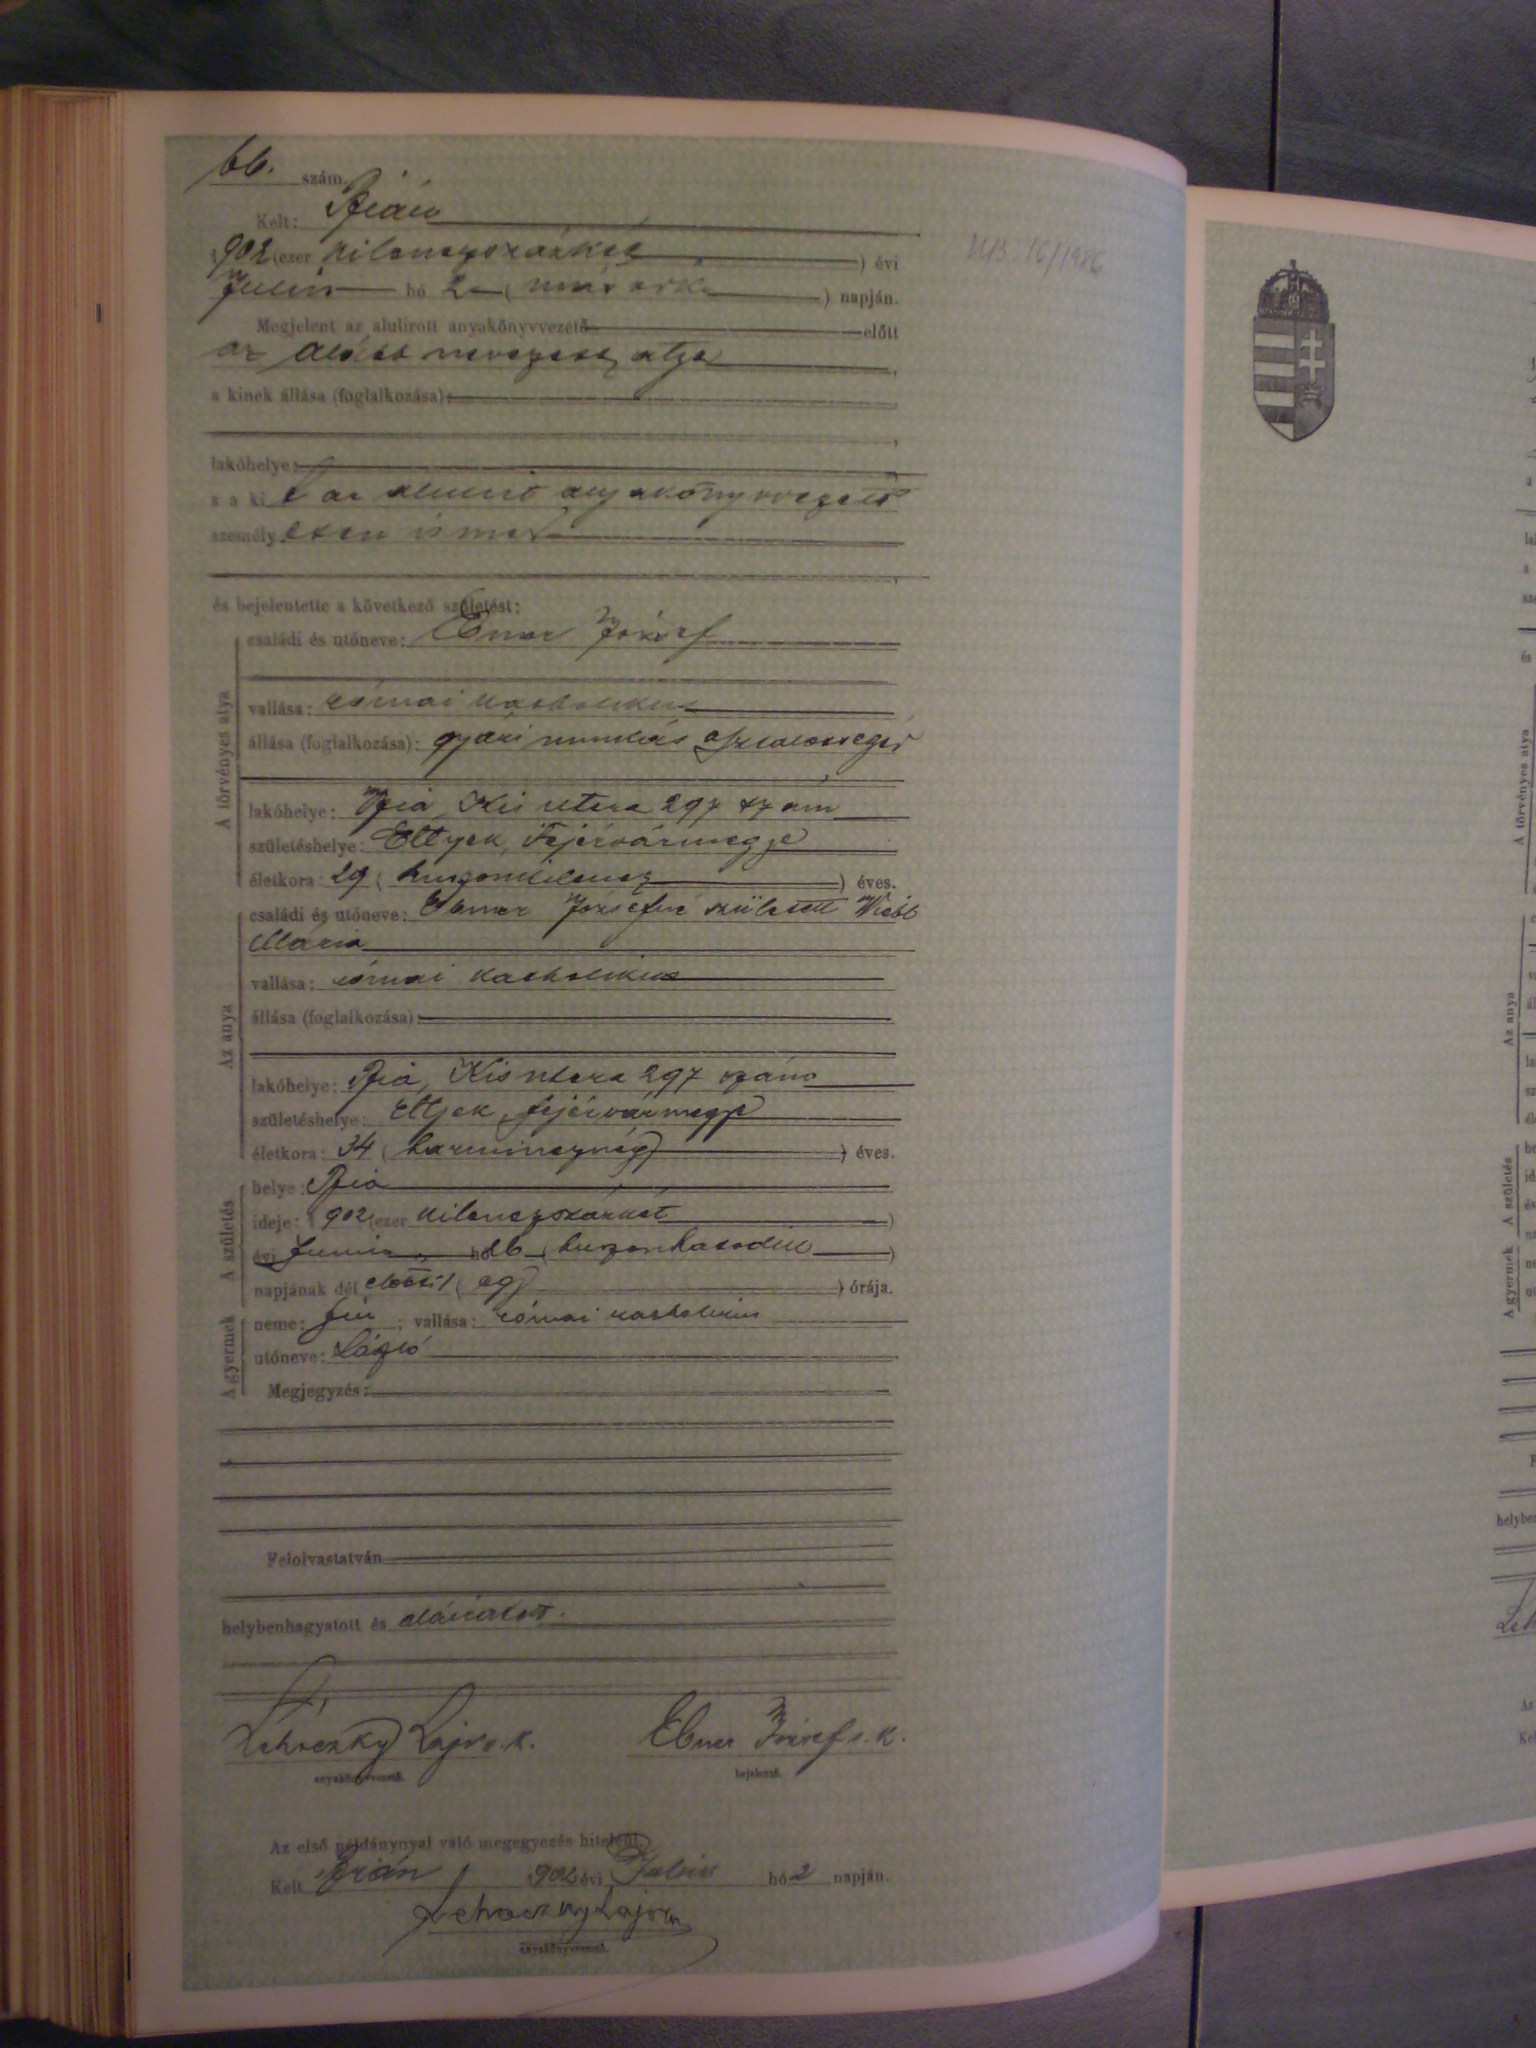 66. szám.
Kelt: Bián
1902 (ezer kilenczszázkét ) évi
Julius hó 2 ( második ) napján.
Megjelent az alulirott anyakönyvvezető előtt
az alább nevezett atya ,
a kinek állása (foglalkozása):
,
lakóhelye:
s a kit az alulirt anyakönyvvezető
személyesen ismer
,
és bejelentette a következő születést:
A törvényes atya
családi és utóneve: Ebner József
vallása: római katholikus
állása (foglalkozása): gyári munkás asztalossegéd
lakóhelye: Bia, Kis utcza 297 szám
születéshelye: Ettyek, Fejérvármegye
életkora: 29 ( huszonkilencz ) éves.
Az anya
családi és utóneve: Ebner Józsefné született
Mária
vallása: római katholikus
állása (foglalkozása):
lakóhelye: Bia, Kis utcza 297 szám
születéshelye: Etyek, Fejérvármegye
életkora: 34 ( harmincznégy ) éves.
A születés
helye: Bia
ideje: 1902 (ezer kilenczszázkét )
évi Junius hó 26 ( huszonhatodik )
napjának dél előtti 1 ( egy ) órája.
A gyermek
neme: fiú ; vallása: római katholikus
utóneve: László
Megjegyzés:
Felolvastatván
helybenhagyatott és aláiratott.
Lehoczky Lajos s. k.
anyakönyvvezető.
Ebner József s. k.
bejelentő.
Az első példánynyal való megegyezés hiteléül,
Kelt Bián 1902 évi Julius hó 2 napján.
Lehoczky Lajos
anyakönyvvezető.
16/1986